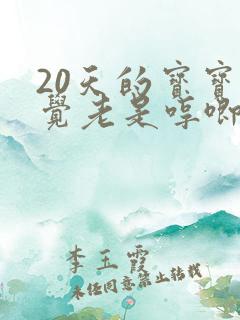 20天的宝宝
觉老是哼唧
李玉霞
未经同意禁止转载